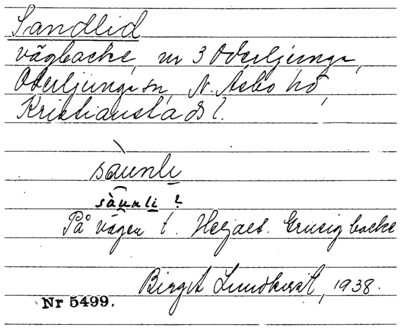 Sandlid
vägbacke, nr 3 Oderljunga,
Oderljunga sn, N. Åsbo hd,
Kristianstads l.
sàunlı
sàunlı ?
På vägen t. Heljalt. Grusig backe
Birgit Lundkvist, 1938.
Nr 5499.